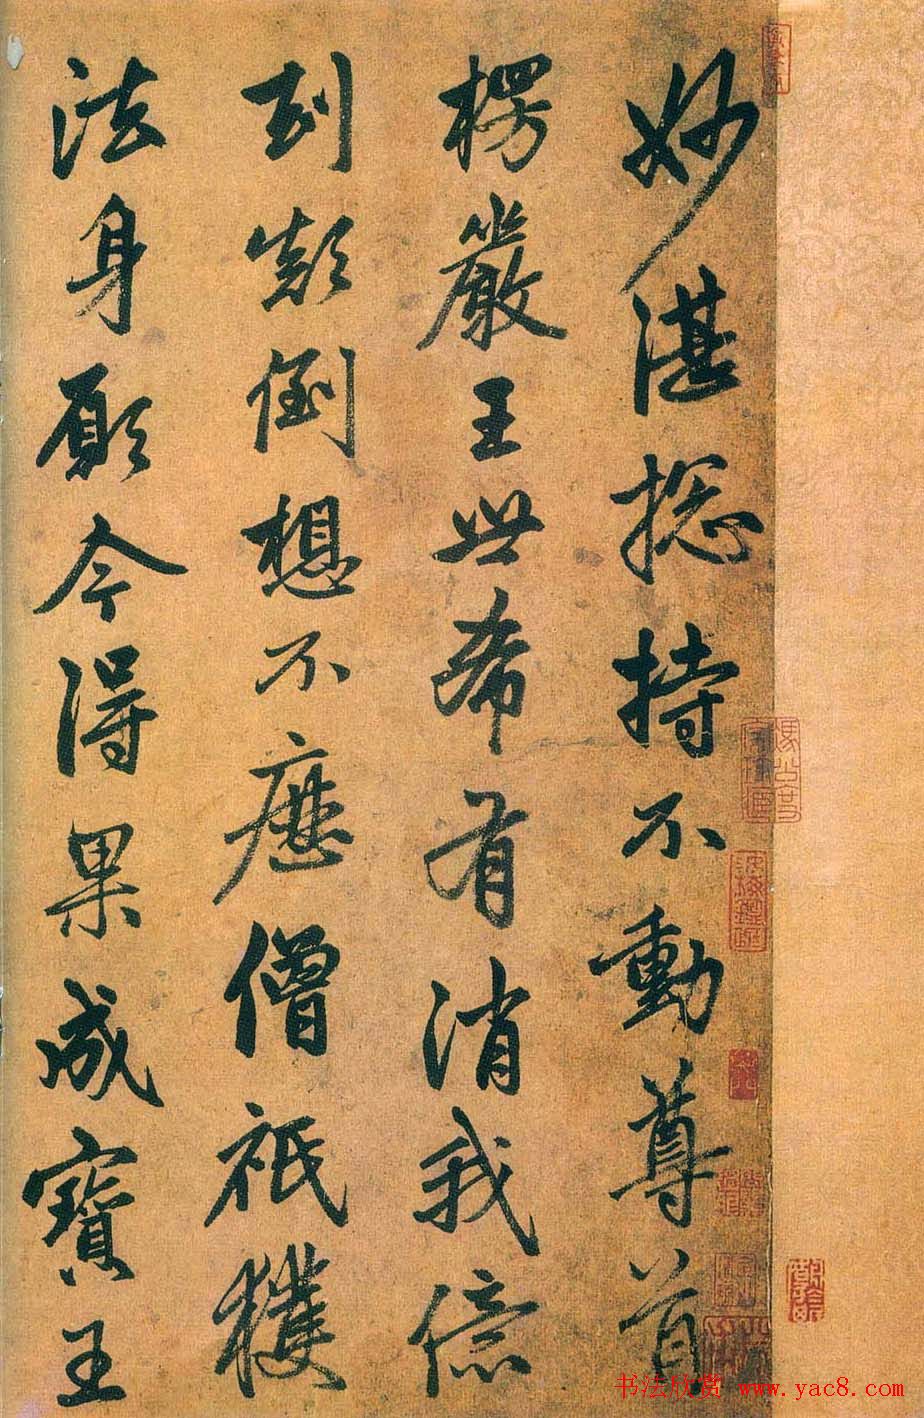 妙湛揔持不動尊首
楞嚴王世希有消我億
到顛倒想不歷僧祇穫
法身願今得果成寶王
书法欣赏 www.yac8.com